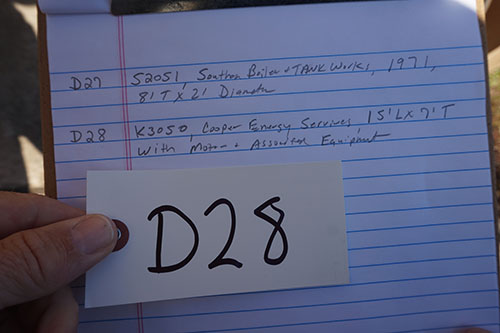 D27 S2051, Southern Boiler + TANK Works, 1971,
8' T X 2' Diameter
D28 K3050, Cooper Energy Services, 15' L X 7' T
With Motor + Associated Equipment
D28